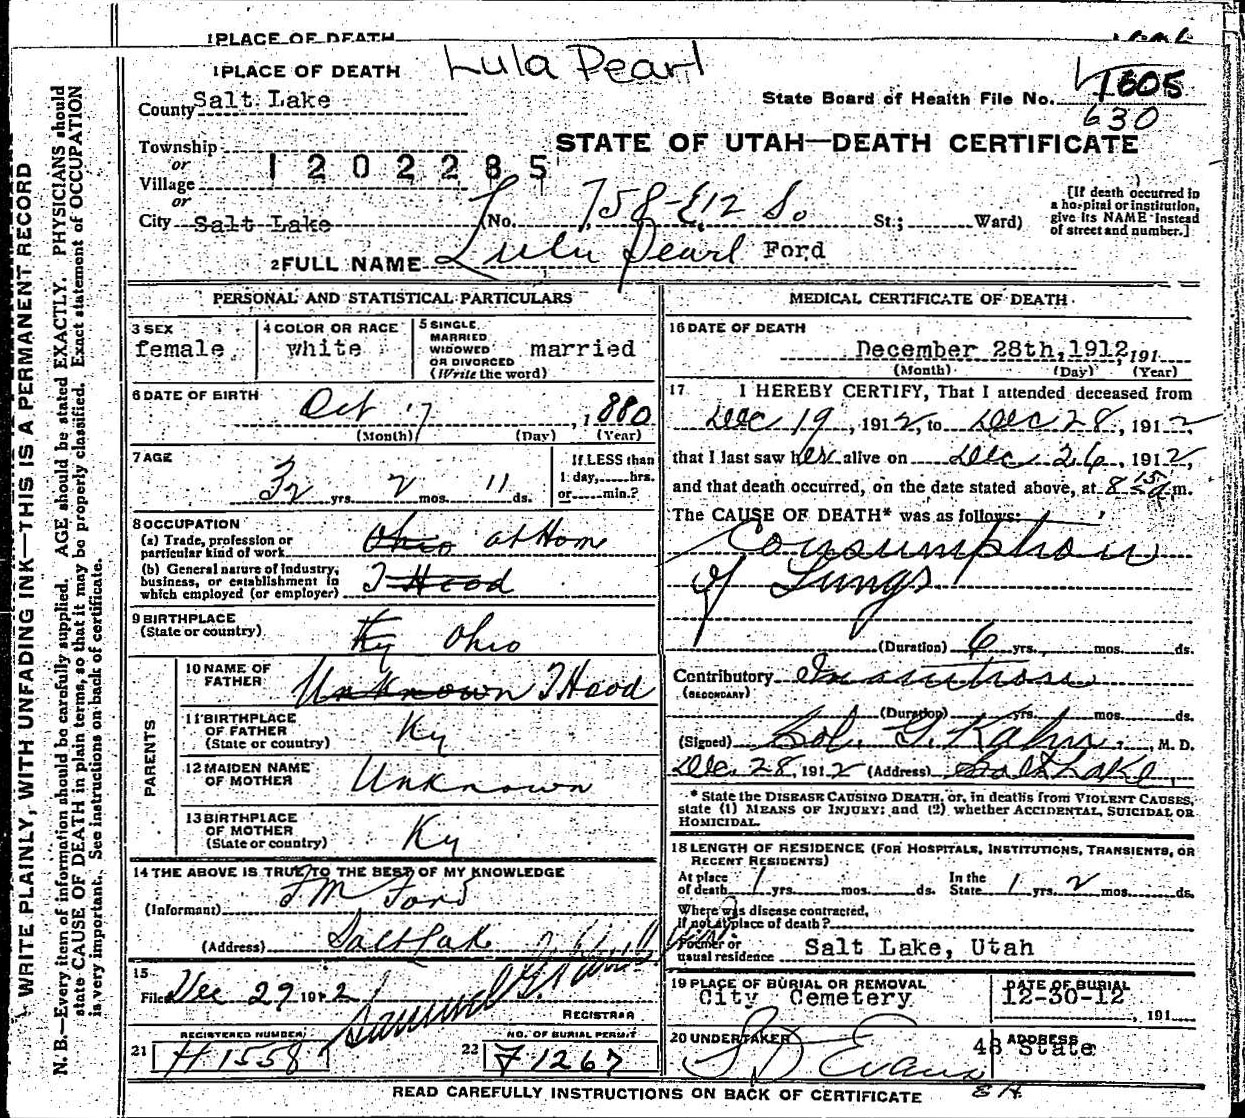 1 PLACE OF DEATH
Lula Pearl
1 PLACE OF DEATH
County Salt Lake
State Board of Health File No. 1605
630
Township
or
Village
or
1202285
STATE OF UTAH—DEATH CERTIFICATE
City Salt Lake (No. 758 E 12 So St.; Ward)
[If death occurred in a hospital or institution, give its NAME instead of street and number.]
2 FULL NAME Lulu Pearl Ford
PERSONAL AND STATISTICAL PARTICULARS
3 SEX
female
4 COLOR OR RACE
white
5 SINGLE,
MARRIED
WIDOWED
OR DIVORCED
(Write the word)
married
6 DATE OF BIRTH
Oct 17, 1880
(Month) (Day) (Year)
7 AGE
32 yrs. 2 mos. 11 ds.
If LESS than
1 day, hrs.
or min.?
8 OCCUPATION
(a) Trade, profession or
particular kind of work Ohio at Home
(b) General nature of industry,
business, or establishment in
which employed (or employer) T Hood
9 BIRTHPLACE
(State or country) Ky Ohio
PARENTS
10 NAME OF
FATHER Unknown T Hood
11 BIRTHPLACE
OF FATHER
(State or country) Ky
12 MAIDEN NAME
OF MOTHER Unknown
13 BIRTHPLACE
OF MOTHER
(State or country) Ky
14 THE ABOVE IS TRUE TO THE BEST OF MY KNOWLEDGE
(Informant) T M Ford
(Address) Salt Lake
15
Filed Dec 29 1912
Samuel G. Paul
REGISTRAR
REGISTERED NUMBER
21 H1558
NO. OF BURIAL PERMIT
22 F1267
MEDICAL CERTIFICATE OF DEATH
16 DATE OF DEATH
December 28th, 1912, 191
(Month) (Day) (Year)
17 I HEREBY CERTIFY, That I attended deceased from
Dec 19, 1912, to Dec 28, 1912,
that I last saw her alive on Dec 26, 1912,
and that death occurred, on the date stated above, at 8 15 a m.
The CAUSE OF DEATH* was as follows:
Consumption
of Lungs
(Duration) 6 yrs. mos. ds.
Contributory Inanition
(SECONDARY)
(Duration) yrs. mos. ds.
(Signed) Sol. G. Kahn, M. D.
Dec. 28, 1912 (Address) Salt Lake
* State the DISEASE CAUSING DEATH, or, in deaths from VIOLENT CAUSES,
state (1) MEANS OF INJURY; and (2) whether ACCIDENTAL, SUICIDAL OR
HOMICIDAL.
18 LENGTH OF RESIDENCE (FOR HOSPITALS, INSTITUTIONS, TRANSIENTS, OR
RECENT RESIDENTS)
At place
of death 1 yrs. mos. ds.
In the
State 1 yrs. 2 mos. ds.
Where was disease contracted,
if not at place of death?
Former or
usual residence Salt Lake, Utah
19 PLACE OF BURIAL OR REMOVAL
City Cemetery
DATE OF BURIAL
12-30-12
, 191
20 UNDERTAKER
S D Evans
ADDRESS
48 State
READ CAREFULLY INSTRUCTIONS ON BACK OF CERTIFICATE
WRITE PLAINLY, WITH UNFADING INK—THIS IS A PERMANENT RECORD
N. B.—Every item of information should be carefully supplied. AGE should be stated EXACTLY. PHYSICIANS should
state CAUSE OF DEATH in plain terms, so that it may be properly classified. Exact statement of OCCUPATION
is very important. See instructions on back of certificate.